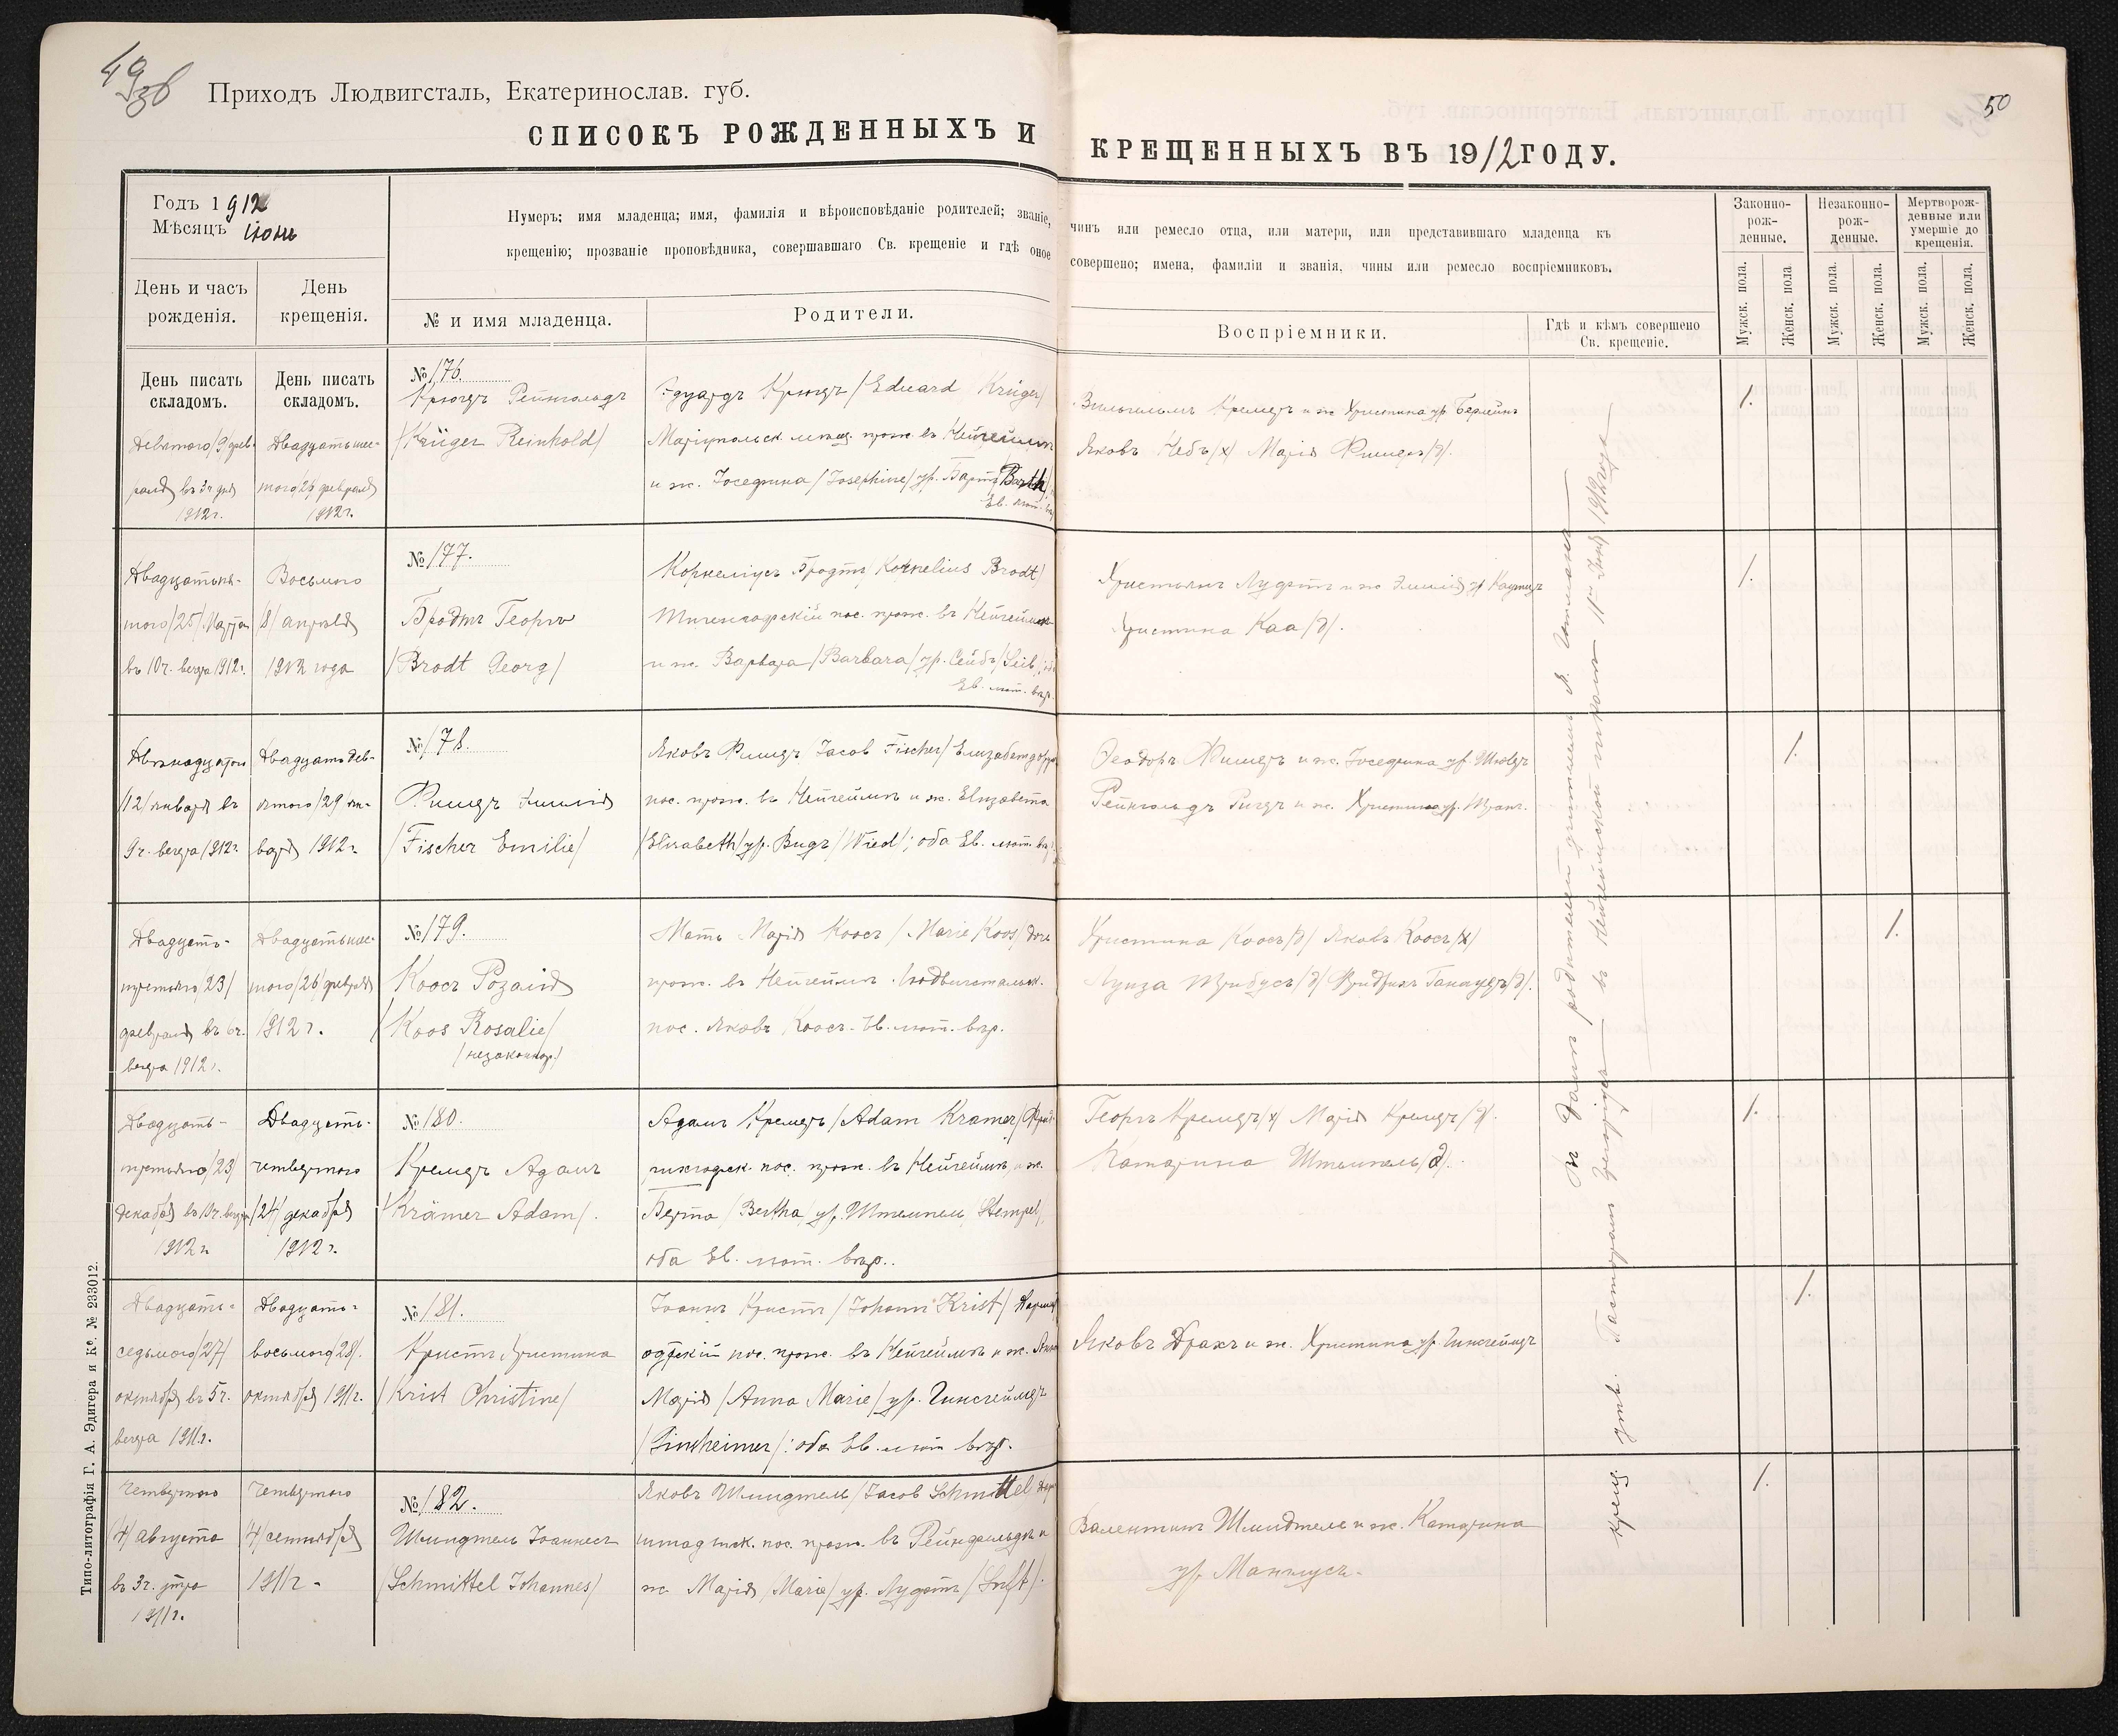 49об
Приходъ Людвигсталь, Екатеринослав. губ.
50
СПИСОКЪ РОЖДЕННЫХЪ И КРЕЩЕННЫХЪ ВЪ 1912 ГОДУ.
Годъ 1912
Мѣсяцъ Іюнь
Нумеръ; имя младенца; имя, фамилія и вѣроисповѣданіе родителей; званіе, чинъ или ремесло отца, или матери, или представившаго младенца къ
крещенію; прозваніе проповѣдника, совершавшаго Св. крещеніе и гдѣ оное совершено; имена, фамиліи и званія, чины или ремесло воспріемниковъ.
Законно-
рож-
денные.
Незаконно-
рож-
денные.
Мертворож-
денные или
умершіе до
крещенія.
День и часъ
рожденія.
День
крещенія.
№ и имя младенца.
Родители.
Воспріемники.
Гдѣ и кѣмъ совершено
Св. крещеніе.
Мужск. пола.
Женск. пола.
Мужск. пола.
Женск. пола.
Мужск. пола.
Женск. пола.
День писать
складомъ.
День писать
складомъ.
Девятого /9 фев-
раля въ 3ч дня
1912г.
Двадцатьшес-
того 26 февраля
1912г.
№ 176.
Крюгеръ Рейнгольдъ
/Krüger Reinhold/
Эдуардъ Крюгеръ /Eduard Krüger/
Маріупольск. мещ. прож. въ Нейгеймѣ
и ж. Іосефина /Josephine/ ур. Бартъ Barth
Ев. лют. вѣр.
Вильгельмъ Кремеръ и ж Христина ур.
Яковъ /х/ Марія Фишеръ /д/.
1.
Двадцатьпя-
того /25/ Марта
въ 10ч. вечера 1912г.
Восьмого
/8/ апрѣля
1912 года
№ 177.
Бродтъ Георгъ
/Brodt Georg/
Корнеліусъ Бродтъ Kornelius Brodt/
пос. прож. въ Нейгеймѣ
и ж. Варвара /Barbara/ ур. Сейбъ /Seib/
Ев. лют. вѣр.
Христьянъ Луфтъ и ж Эмилія ур
Христина Каа /д/.
1.
Двѣнадцатого
/12/ января въ
9ч. вечера 1912г.
Двадцатьдев-
ятого /29 ян-
варя 1912г.
№ 178.
Фишеръ Эмилія
/Fischer Emilie/
Яковъ Фишеръ Jacob Fischer/
пос. прож. въ Нейгеймѣ и ж. Елизабета
/Elisabeth/ ур. Видъ /Wied/; оба Ев. лют. вѣр.
Феодоръ Фишеръ и ж. Іосефина ур.
Рейнгольдъ и ж. Христина ур.
1.
Двадцать-
третьяго /23/
февраля въ 6ч.
вечера 1912г.
Двадцатьшес-
того /26/ февраля
1912г.
№ 179.
Коосъ Розалія
/Koos Rosalie/
/незаконнор./
Мать Марія Коосъ /Marie Koos/ дочь
прож. въ Нейгеймѣ Людвигстальск.
пос. Яковъ Коосъ. Ев. лют. вѣр.
Христина Коосъ /д/ Яковъ Коосъ /х/
Луиза Трибусъ /д/ Фридрихъ
1.
Двадцать-
третьяго /23/
декабря въ 10ч. вечера
1912г
Двадцать-
четвертого
/24/ декабря
1912г.
№ 180.
Кремеръ Адамъ
/Krämer Adam/.
Адамъ Кремеръ /Adam Kramer/
пос. прож. въ Нейгеймѣ, и ж.
Берта /Bertha/ ур. Штемпель /Stempel/,
оба Ев. лют. вѣр..
Георгъ Кремеръ /х/ Марія Кремеръ /д/.
Катарина Штемпель /д/.
1.
Двадцать-
седьмого /27/
октября въ 5ч.
вечера 1911г.
Двадцать-
восьмого /28/.
октября 1911г.
№ 181.
Кристъ Христина
/Krist Christine/
Іоаннъ Кристъ /Johann Krist/
пос. прож. въ Нейгеймѣ и ж. Анна
Марія /Anna Marie/ ур. Гинсгеймеръ
оба Ев. лют вѣр.
Яковъ Драхъ и ж. Христина ур. Гинсгеймеръ
1.
Четвертого
/4/ августа
въ 3ч. утра
1911г.
Четвертого
/4/ сентября
1911г.
№ 182.
Шмидтель Іоаннесъ
/Schmittel Johannes/
Яковъ Шмидтель /Jacob Schmittel
пос. прож. въ Рейнфельдѣ и
ж. Марія /Marie/ ур. Луфтъ /Luft/.
Валентинъ Шмидтель и ж. Катарина
ур.
1.
Типо-литографія Г. А. Эдигера и Ко. № 233012.